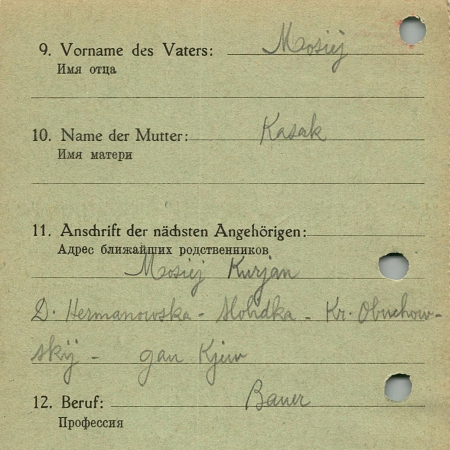 9. Vorname des Vaters: Mosiej
Имя отца
10. Name der Mutter: Kasak
Имя матери
11. Anschrift der nächsten Angehörigen:
Адрес ближайших родственников
Mosiej Kurjan
D. Hermanowska - Slobidka - Kr. Obuchow-
skij - gau Kjew
12. Beruf: Bauer
Профессия